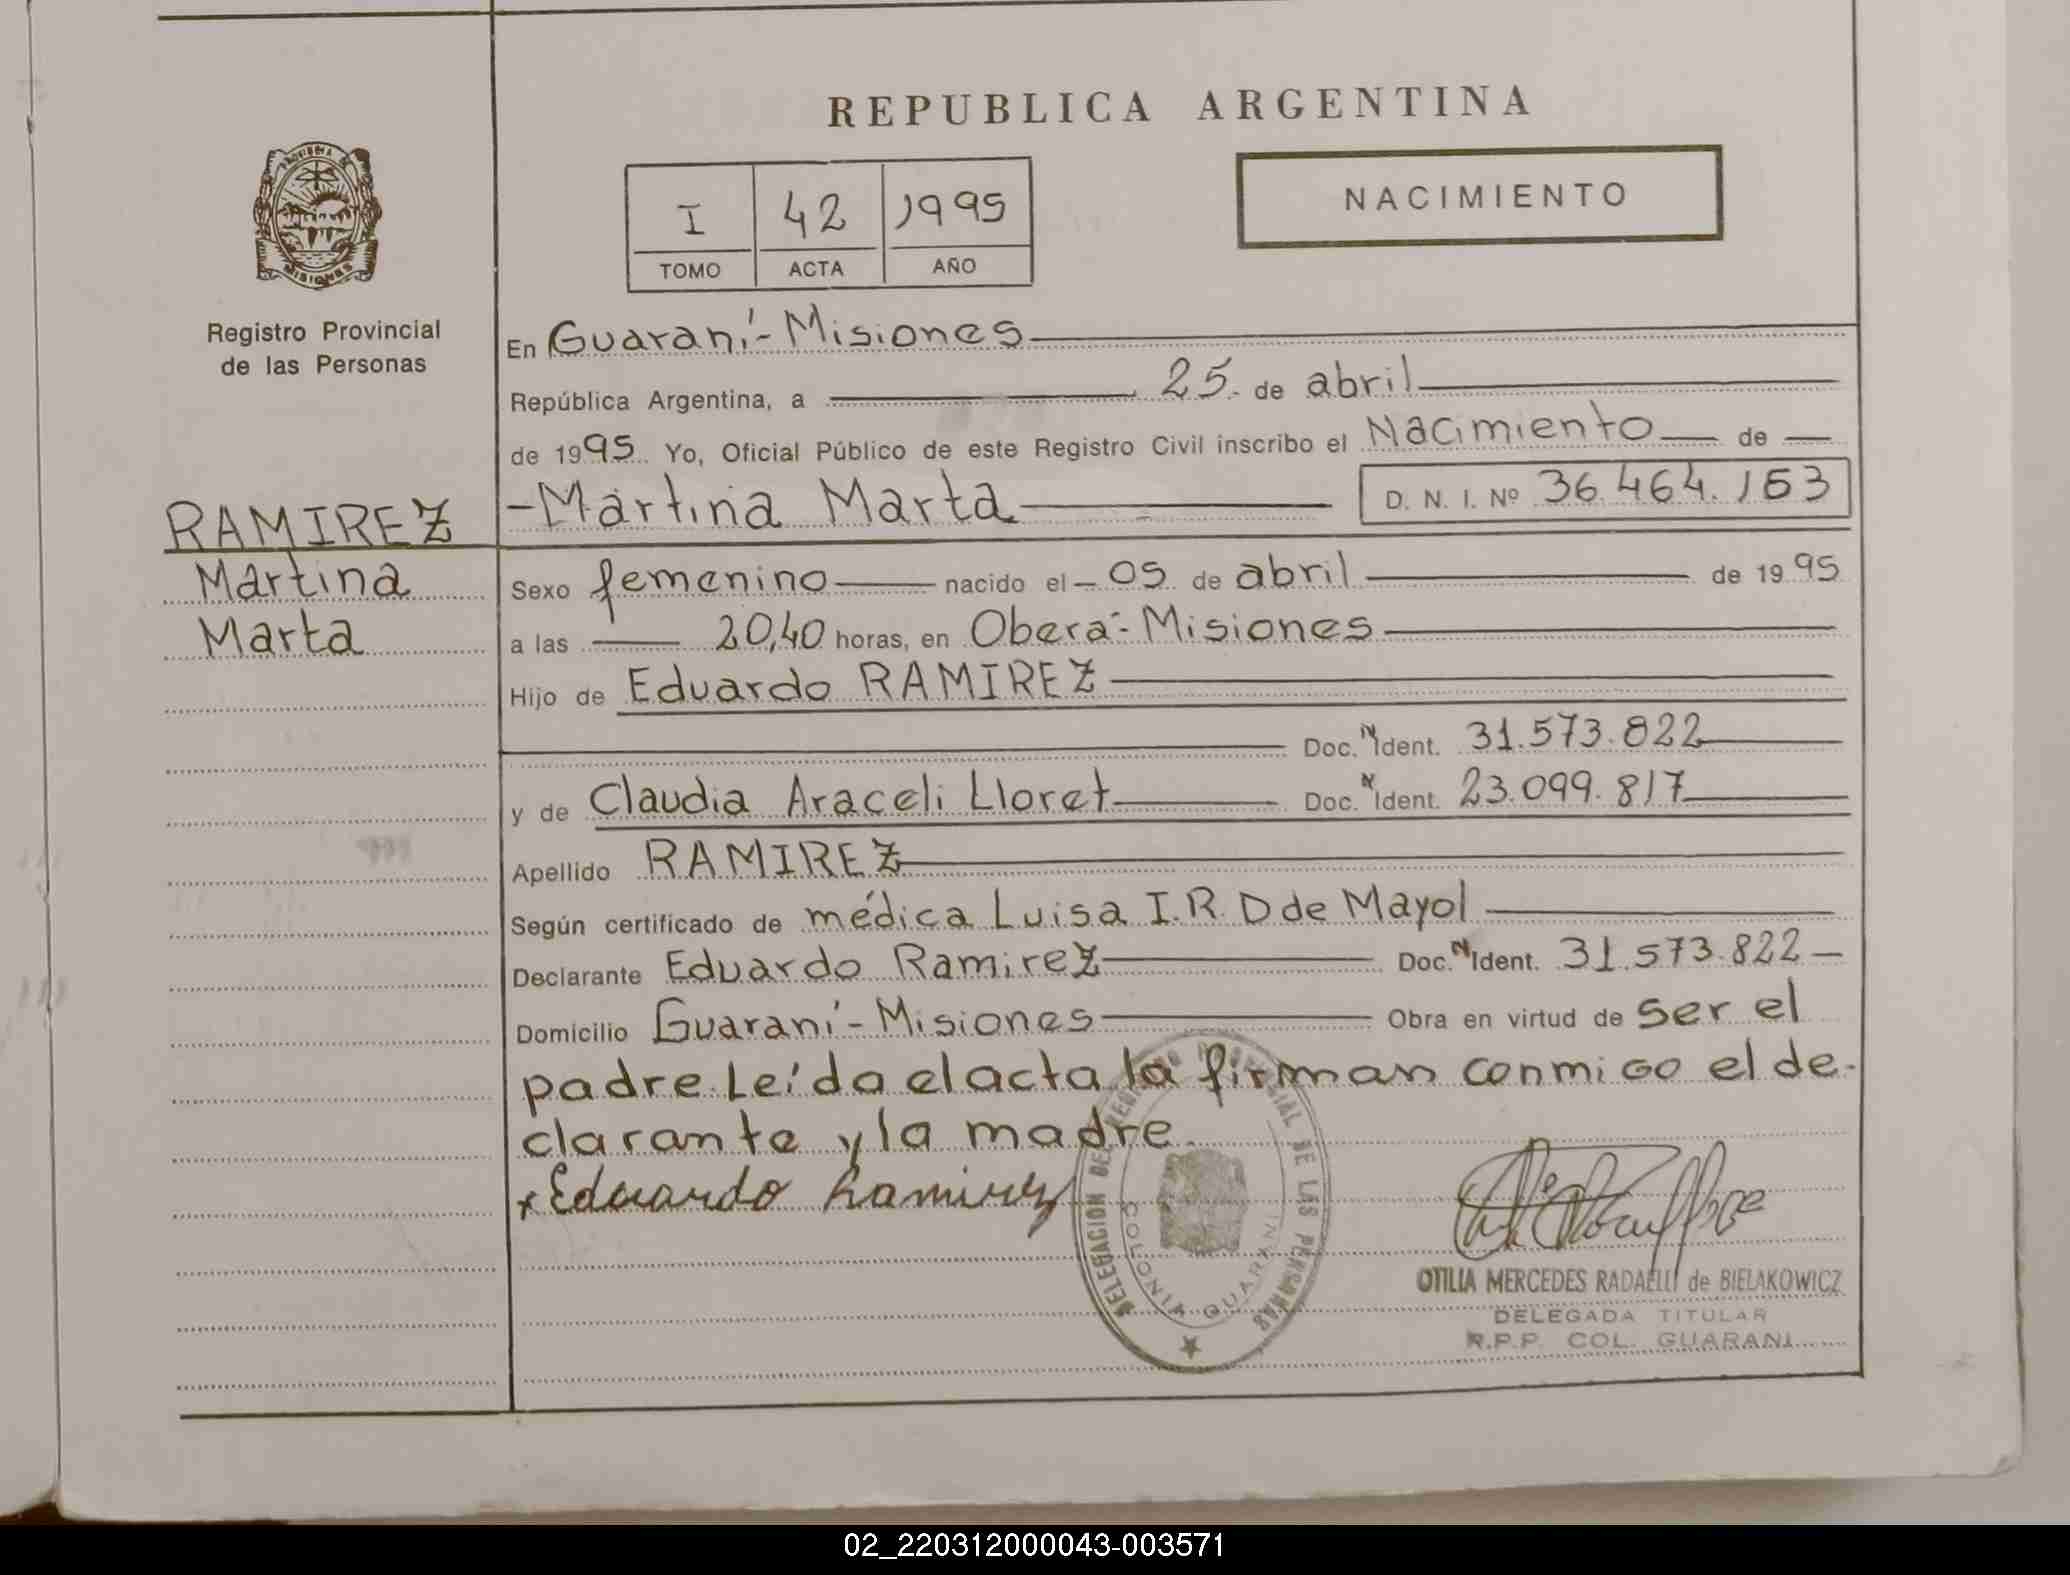 REPUBLICA ARGENTINA
NACIMIENTO
I 42 1995
TOMO ACTA AÑO
PROVINCIA DE
MISIONES
Registro Provincial
de las Personas
RAMIREZ
Martina
Marta
En Guaraní - Misiones
República Argentina, a 25 de abril
de 1995 Yo, Oficial Público de este Registro Civil inscribo el Nacimiento de
- Martina Marta D. N. I. Nº 36.464.153
Sexo femenino nacido el - 05 de abril de 1995
a las 20,40 horas, en Oberá - Misiones
Hijo de Eduardo RAMIREZ
Doc. N Ident. 31.573.822
y de Claudia Araceli Lloret Doc. N Ident. 23.099.817
Apellido RAMIREZ
Según certificado de médica Luisa I. R. D de Mayol
Declarante Eduardo Ramirez Doc. N Ident. 31.573.822 -
Domicilio Guaraní - Misiones Obra en virtud de ser el
padre. Leída el acta la firman conmigo el de-
clarante y la madre.
x Eduardo Ramirez
DELEGACION DEL REGISTRO PROVINCIAL DE LAS PERSONAS
COLONIA GUARANI
OTILIA MERCEDES RADAELLI de BIELAKOWICZ
DELEGADA TITULAR
R.P.P. COL. GUARANI
02_220312000043-003571